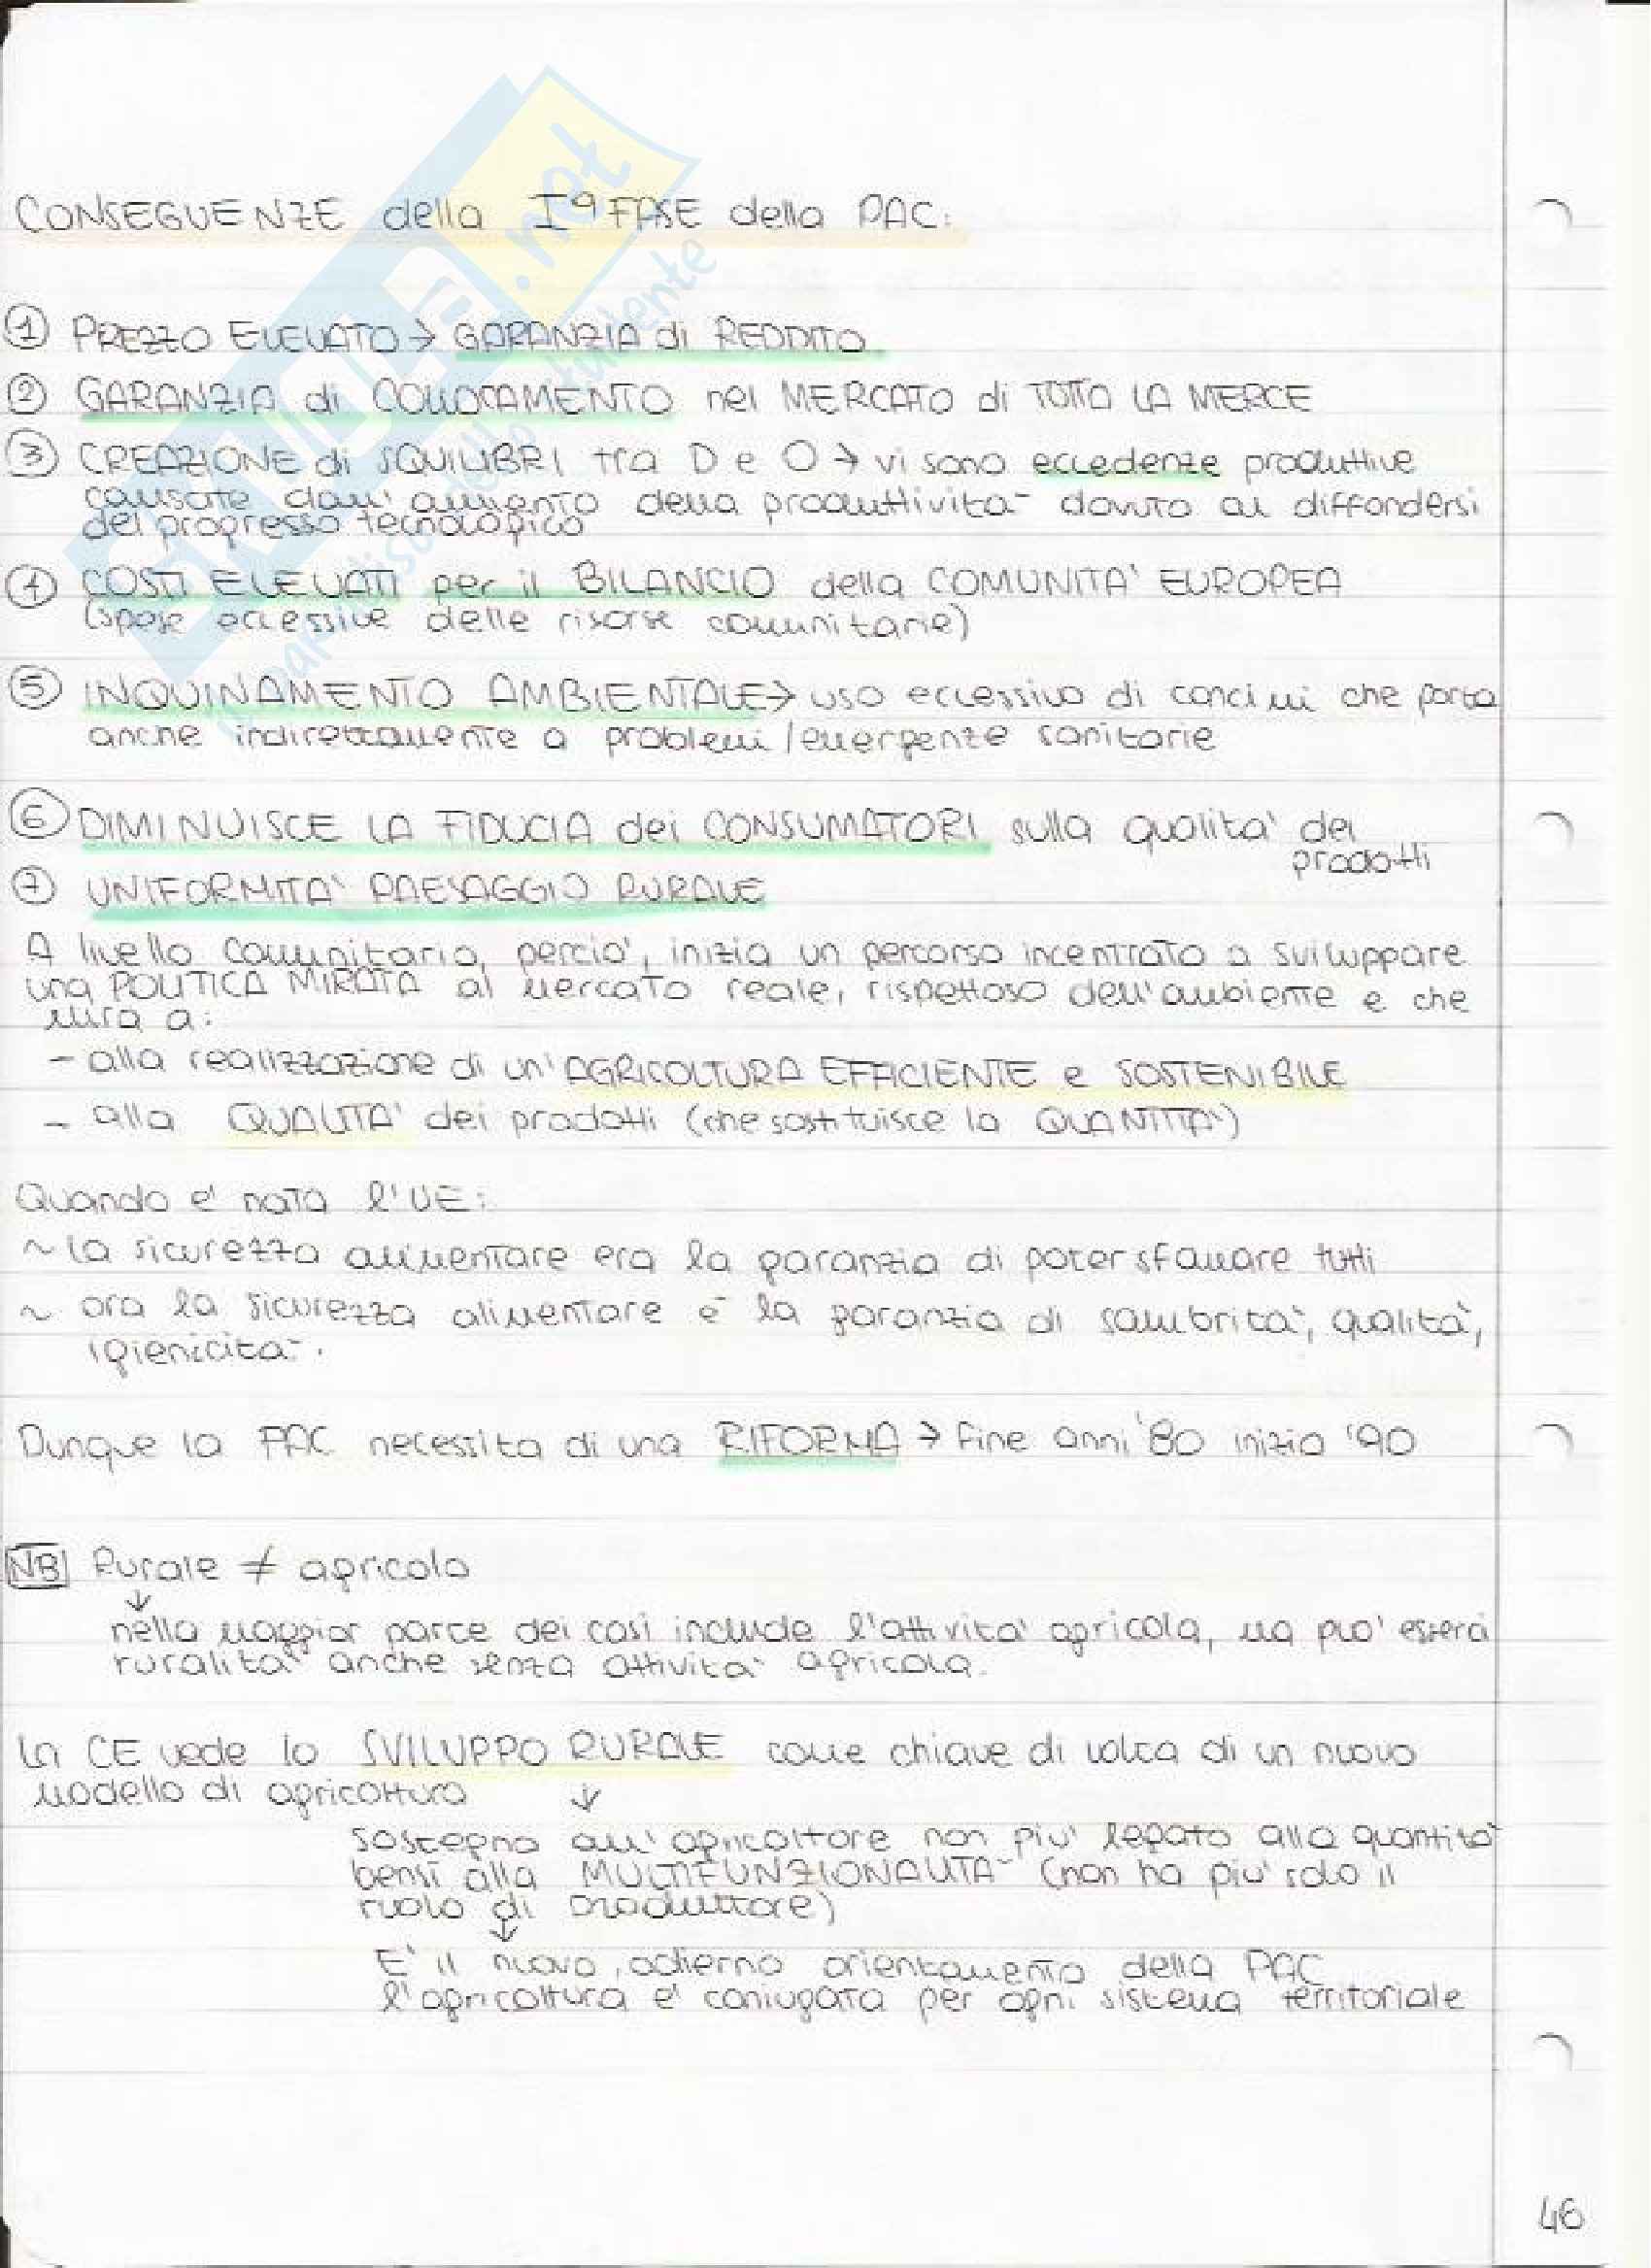 CONSEGUENZE della Iª FASE della PAC:
① PREZZO ELEVATO → GARANZIA di REDDITO
② GARANZIA di COLLOCAMENTO nel MERCATO di TUTTA LA MERCE
③ CREAZIONE di SQUILIBRI tra D e O → vi sono eccedenze produttive
causate dall'aumento della produttività dovuto al diffondersi
del progresso tecnologico
④ COSTI ELEVATI per il BILANCIO della COMUNITA' EUROPEA
(spese eccessive delle risorse comunitarie)
⑤ INQUINAMENTO AMBIENTALE → uso eccessivo di concimi che porta
anche indirettamente a problemi/emergenze sanitarie
⑥ DIMINUISCE LA FIDUCIA dei CONSUMATORI sulla qualita' dei
prodotti
⑦ UNIFORMITA' PAESAGGIO RURALE
A livello comunitario, percio', inizia un percorso incentrato a sviluppare
una POLITICA MIRATA al mercato reale, rispettoso dell'ambiente e che
mira a:
- alla realizzazione di un'AGRICOLTURA EFFICIENTE e SOSTENIBILE
- alla QUALITA' dei prodotti (che sostituisce la QUANTITA')
Quando e' nata l'UE:
~ la sicurezza alimentare era la garanzia di poter sfamare tutti
~ ora la sicurezza alimentare è la garanzia di salubrità, qualità,
igienicità.
Dunque la PAC necessita di una RIFORMA → fine anni '80 inizio '90
NB Rurale ≠ agricolo
↓
nella maggior parte dei casi include l'attivita' agricola, ma puo' esserci
ruralità anche senza attività agricola.
La CE vede lo SVILUPPO RURALE come chiave di volta di un nuovo
modello di agricoltura ↓
sostegno all'agricoltore non piu' legato alla quantità
bensì alla MULTIFUNZIONALITÀ (non ha piu' solo il
ruolo di produttore)
↓
E' il nuovo, odierno orientamento della PAC
l'agricoltura e' coniugata per ogni sistema territoriale
46
SKUOLA.net